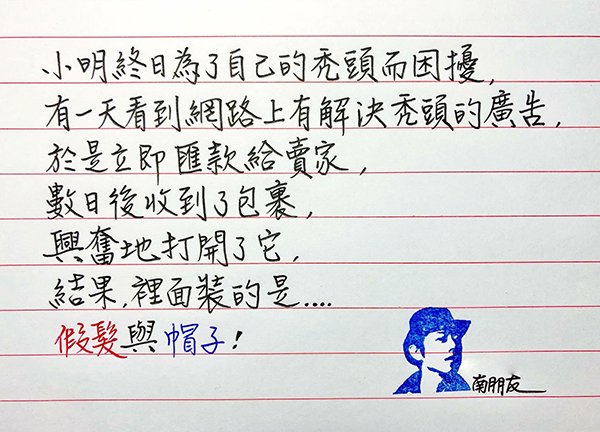 小明終日為了自己的禿頭而困擾,
有一天看到網路上有解決禿頭的廣告,
於是立即匯款給賣家,
數日後收到了包裹,
興奮地打開了它,
結果,裡面裝的是....
假髮與帽子!
南朋友